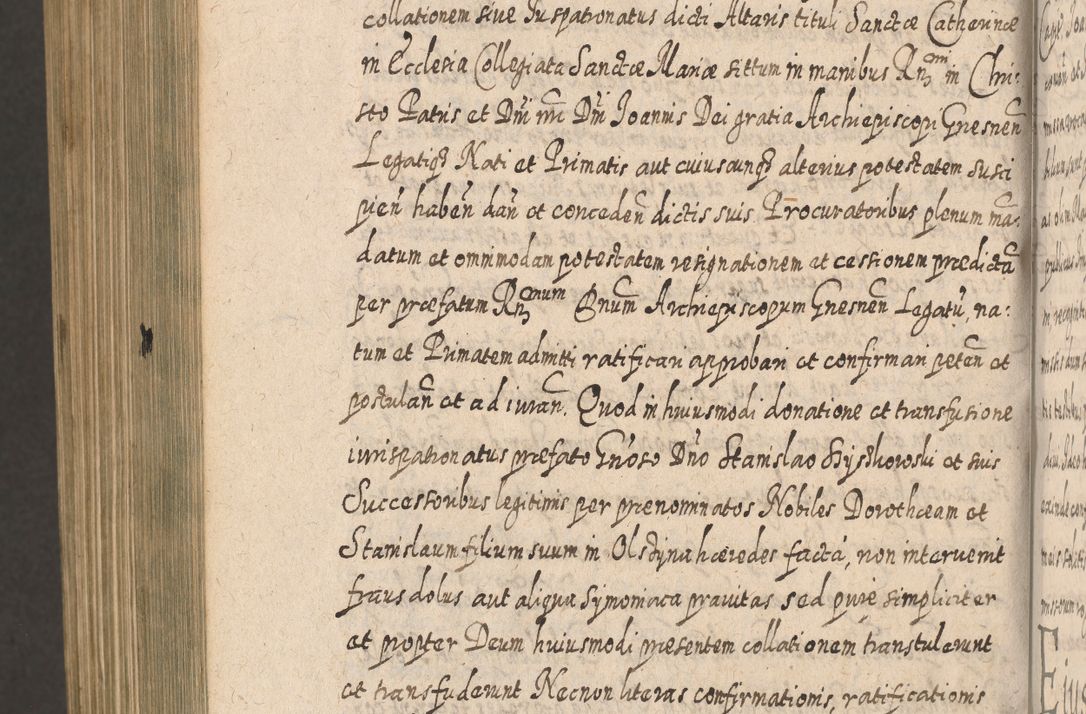 collationem siue Juspatronatus dicti Altaris tituli Sanctæ Catharinæ
in Ecclesia Collegiata Sanctæ Mariæ sittum in manibus Rn̄dm̄i in Chri:
sto Patris et Dn̄i nr̄i Dn̄i Joannis Dei gratia Archiepiscopi Gnesneñ
Legatiqȝ Nati et Primatis aut cuiuscunqȝ alterius potestatem susci
pieñ habeñ dañ et concedeñ dictis suis Procuratoribus plenum mā:
datum et omnimodam potestatem resignationem et cessionem prædictā
per præfatum Rn̄dmum Dnum̄ Archiepiscopum Gnesneñ Legatū, na:
tum et Primatem admitti ratificari approbari et confirmari peteñ et
postulañ et ad iurañ. Quod in huiusmodi donatione et transfusione
iurispatronatus prefato Gn̄oso Dn̄o Stanislao et suis
Successoribus legitimis per prenominatos Nobiles Dorothæam et
Stanislaum filium suum in Olstyna hæredes facta, non interuenit
fraus dolus aut aliqua symoniaca prauitas sed pure simpliciter
et propter Deum huiusmodi presentem collationem transtulerunt
et transfuderunt Necnon literas confirmationis, ratificationis